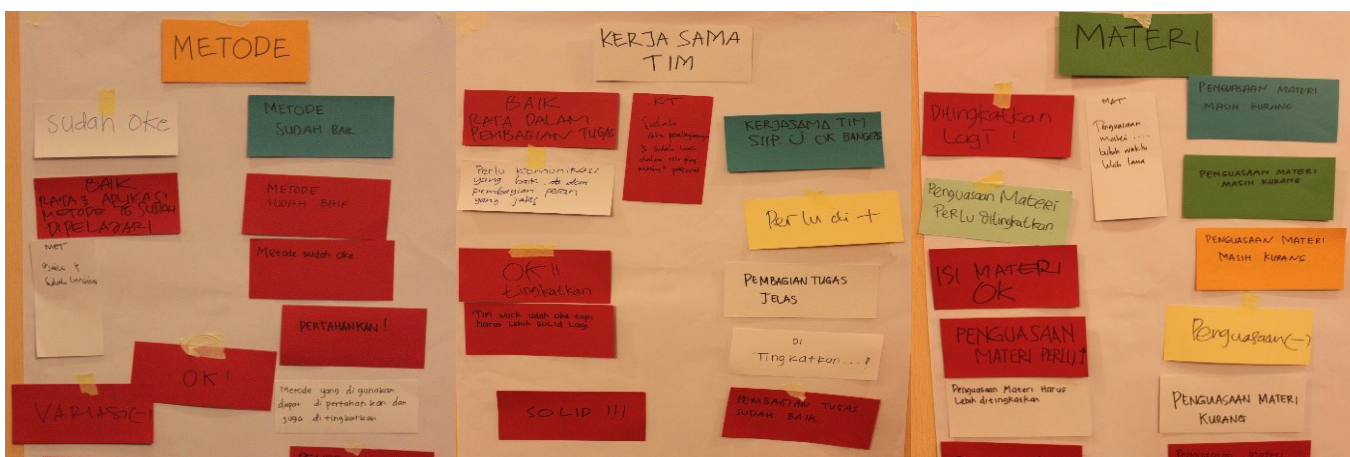 METODE
Sudah Oke
METODE
SUDAH BAIK
BAIK
METODE
SUDAH BAIK
METODE YG SUDAH
DIPELAJARI
MET
Baik &
Metode sudah oke
PERTAHANKAN!
OK!
VARIASI (-)
Metode yang di gunakan
dapat di pertahankan dan
juga di tingkatkan
KERJA SAMA
TIM
BAIK
RATA DALAM
PEMBAGIAN TUGAS
KT
Sudah
KERJASAMA TIM
SIIP OK BANGETS
Perlu komunikasi
yang baik
pembagian peran
yang jelas
Perlu di +
OK!!
tingkatkan
PEMBAGIAN TUGAS
JELAS
Tim work udah oke tapi
harus lebih solid lagi
DI
Tingkatkan....!
SOLID !!!
PEMBAGIAN TUGAS
SUDAH BAIK
MATERI
Ditingkatkan
LAGI !
MAT
Penguasaan
materi ....
butuh waktu
lebih lama
PENGUASAAN MATERI
MASIH KURANG
PENGUASAAN MATERI
MASIH KURANG
Penguasaan Materi
PERLU ditingkatkan
PENGUASAAN MATERI
MASIH KURANG
ISI MATERI
OK
PENGUASAAN
MATERI PERLU ↑
Penguasaan (-)
Penguasaan Materi Harus
Lebih ditingkatkan
PENGUASAAN MATERI
KURANG